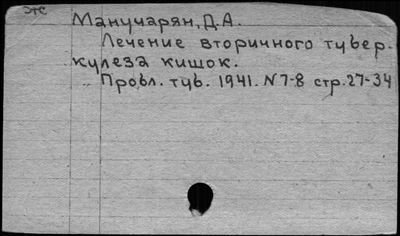 ж
Манучарян, Д.А.
Лечение вторичного тубер-
кулеза кишок.
Пробл. туб. 1941. N7-8 стр. 27-34